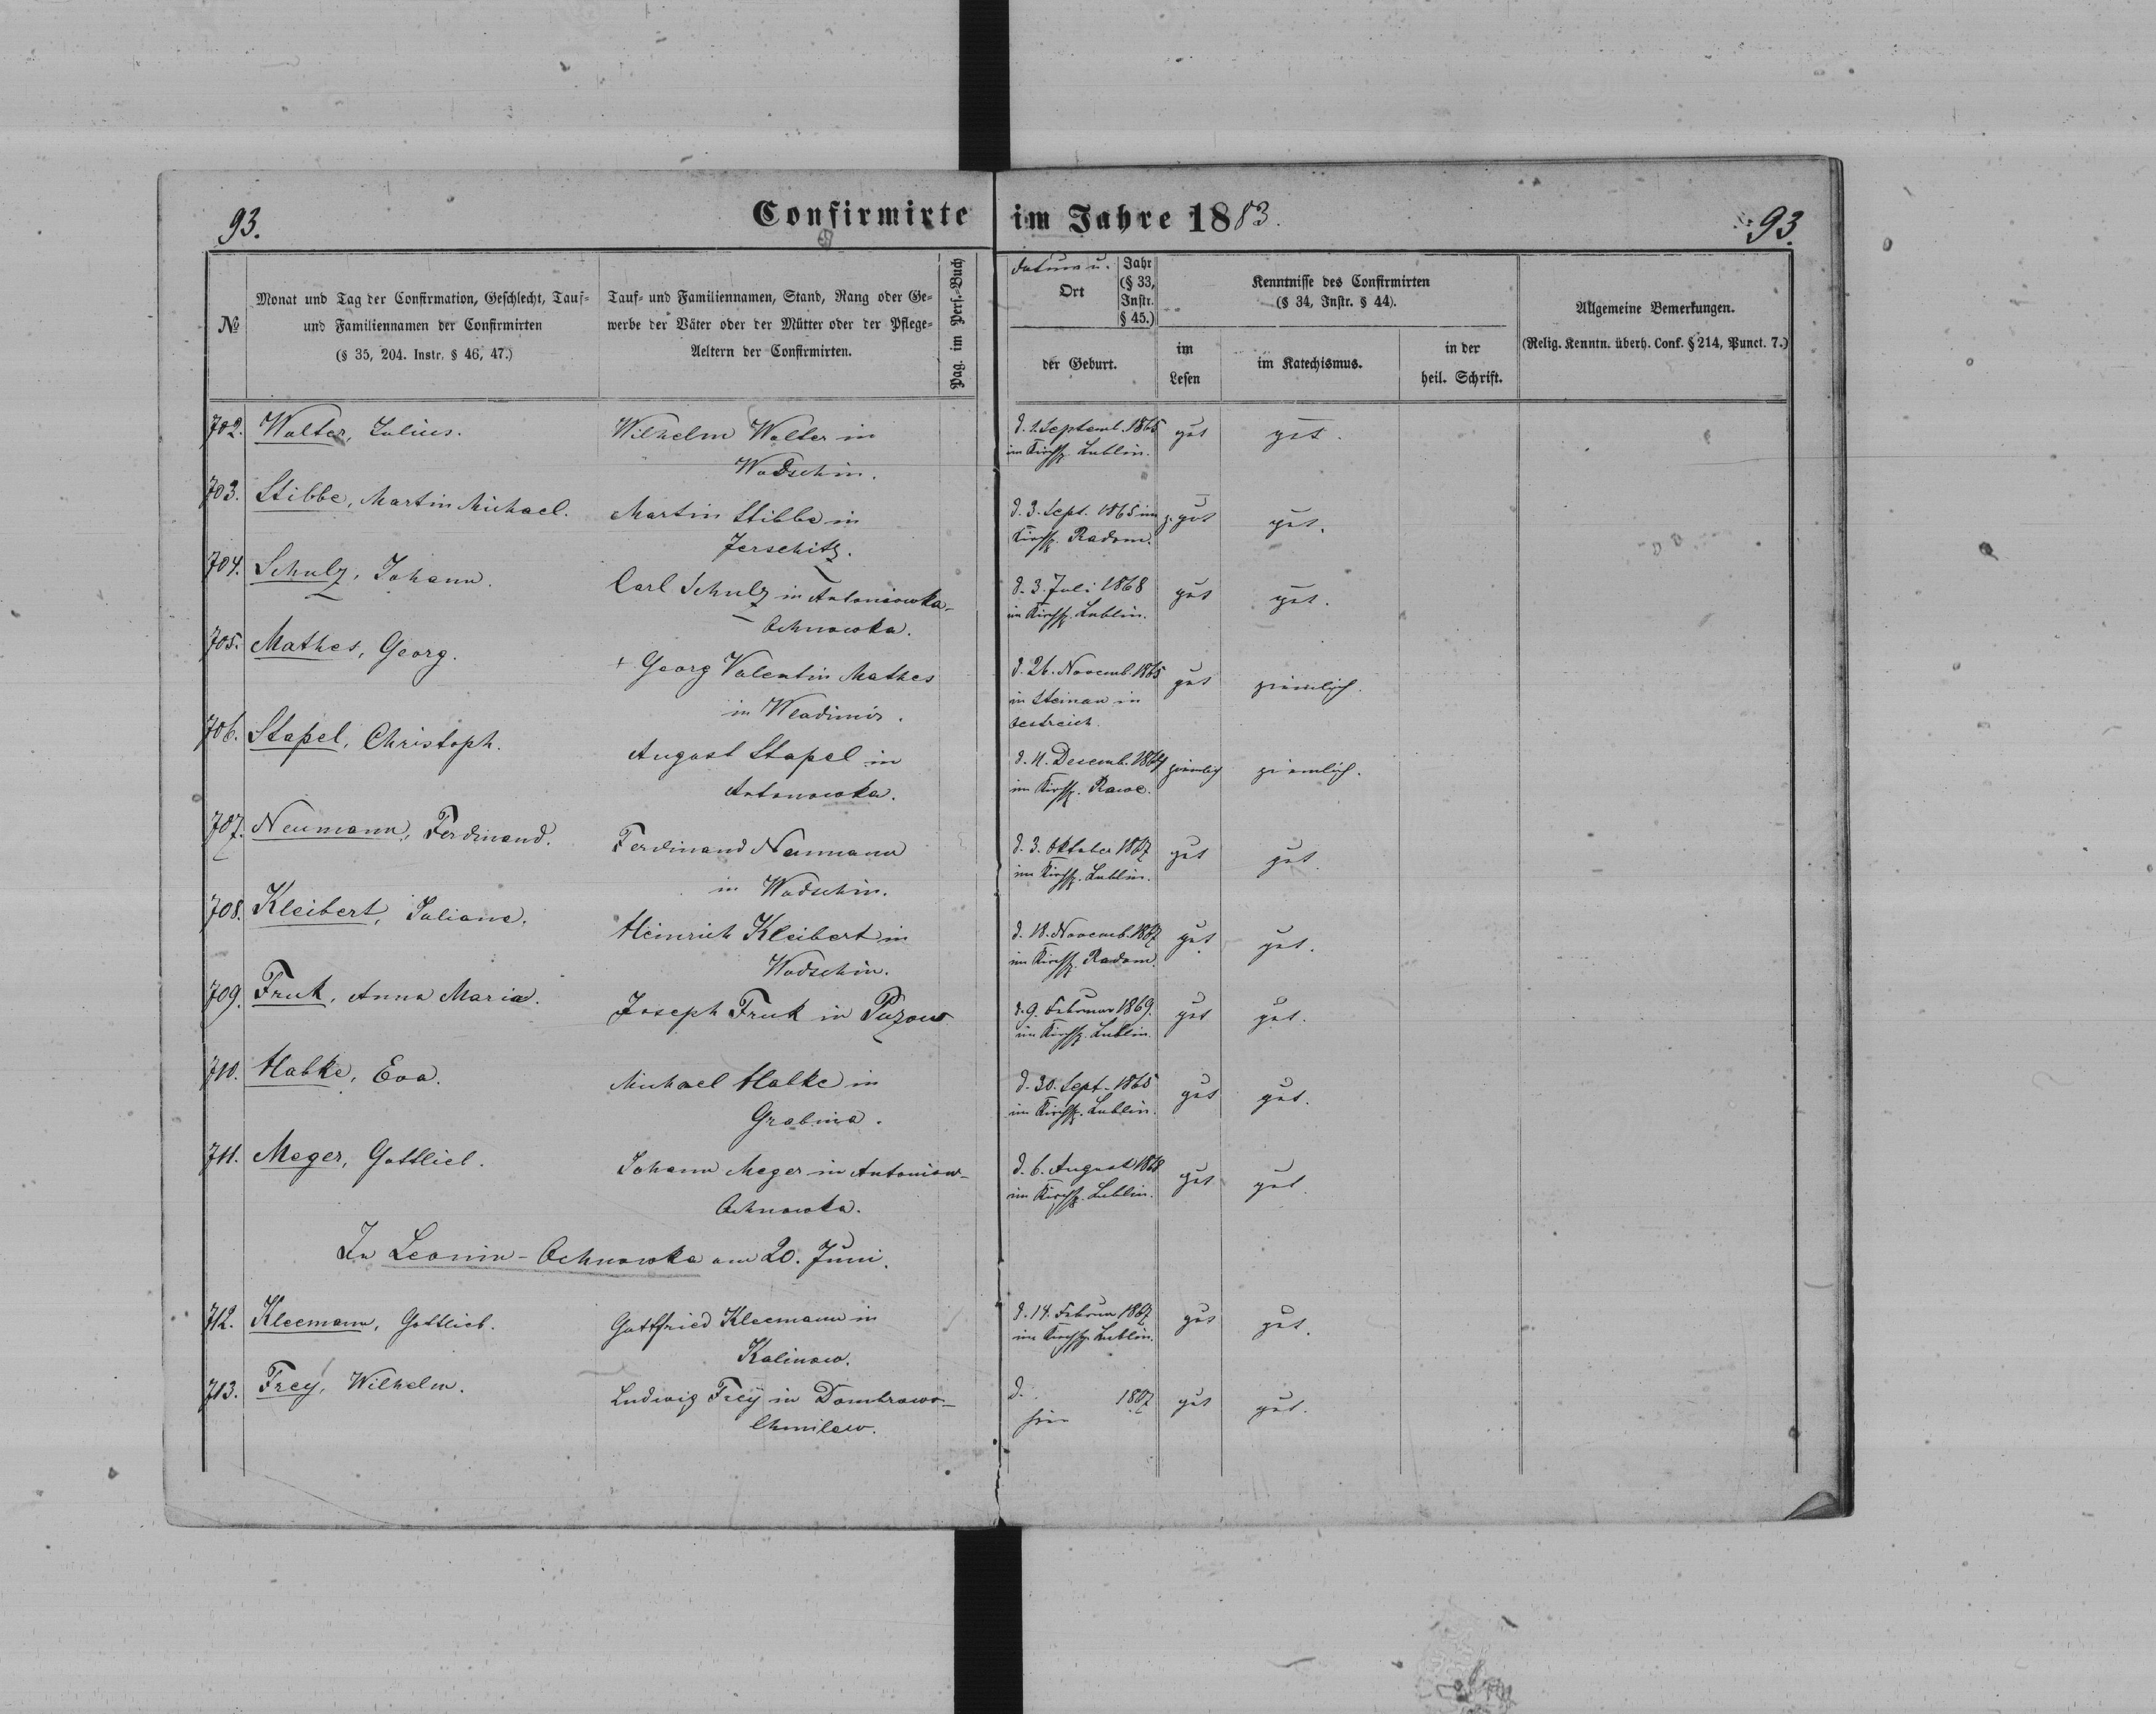 93.
Confirmirte im Jahre 1883.
93.
№
Monat und Tag der Confirmation, Geschlecht, Tauf-
und Familiennamen der Confirmirten
(§ 35, 204. Instr. § 46, 47.)
Tauf- und Familiennamen, Stand, Rang oder Ge-
werbe der Väter oder der Mütter oder der Pflege-
Aeltern der Confirmirten.
Pag. im Pers.-Buch
Datum u.
Ort
Jahr
(§ 33,
Instr.
§ 45.)
der Geburt.
Kenntnisse des Confirmirten
(§ 34, Instr. § 44).
im
Lesen
im Katechismus.
in der
heil. Schrift.
Allgemeine Bemerkungen.
(Relig. Kenntn. überh. Conf. § 214, Punct. 7.)
702. Walter, Julius. Wilhelm Walter in d. 1. Septemb. 1865 gut gut.
Wodschin. im Kirchsp. Lublin.
703. Stibbe, Martin Michael. Martin Stibbe in d. 3. Sept. 1865 im z. gut gut.
Jerschitz. Kirchsp. Radom.
704. Schulz, Johann. Carl Schulz in Antoniowka- d. 3. Juli 1868 gut gut.
Ochnowka. im Kirchsp. Lublin.
705. Mathes, Georg. + Georg Valentin Mathes d. 26. Novemb. 1865 gut ziemlich.
in Wladimir. in Steinau in
Oestreich.
706. Stapel, Christoph. August Stapel in d. 4. Decemb. 1864 ziemlich ziemlich.
Antonowka. im Kirchsp. Rawe.
707. Neumann, Ferdinand. Ferdinand Neumann d. 3. Oktober 1867 gut gut.
in Wodschin. im Kirchsp. Lublin.
708. Kleibert, Juliane. Heinrich Kleibert in d. 18. Novemb. 1867 gut gut.
Wodschin. im Kirchsp. Radom.
709. Fruk, Anna Maria. Joseph Fruk in Puzow d. 9. Februar 1869. gut gut.
im Kirchsp. Lublin.
710. Habke, Eva. Michael Habke in d. 30. Sept. 1865 gut gut.
Grabina. im Kirchsp. Lublin.
711. Meger, Gottlieb. Johann Meger in Antoniow- d. 6. August 1868 gut gut.
Ochnowka. im Kirchsp. Lublin.
In Leonin-Ochnowka am 20. Juni.
712. Kleemann, Gottlieb. Gottfried Kleemann in d. 14. Februar 1867 gut gut.
Kalinow. im Kirchsp. Lublin.
713. Frey, Wilhelm. Ludwig Frey in Dombrowo- d. 1867 gut gut.
Chmilow. hier